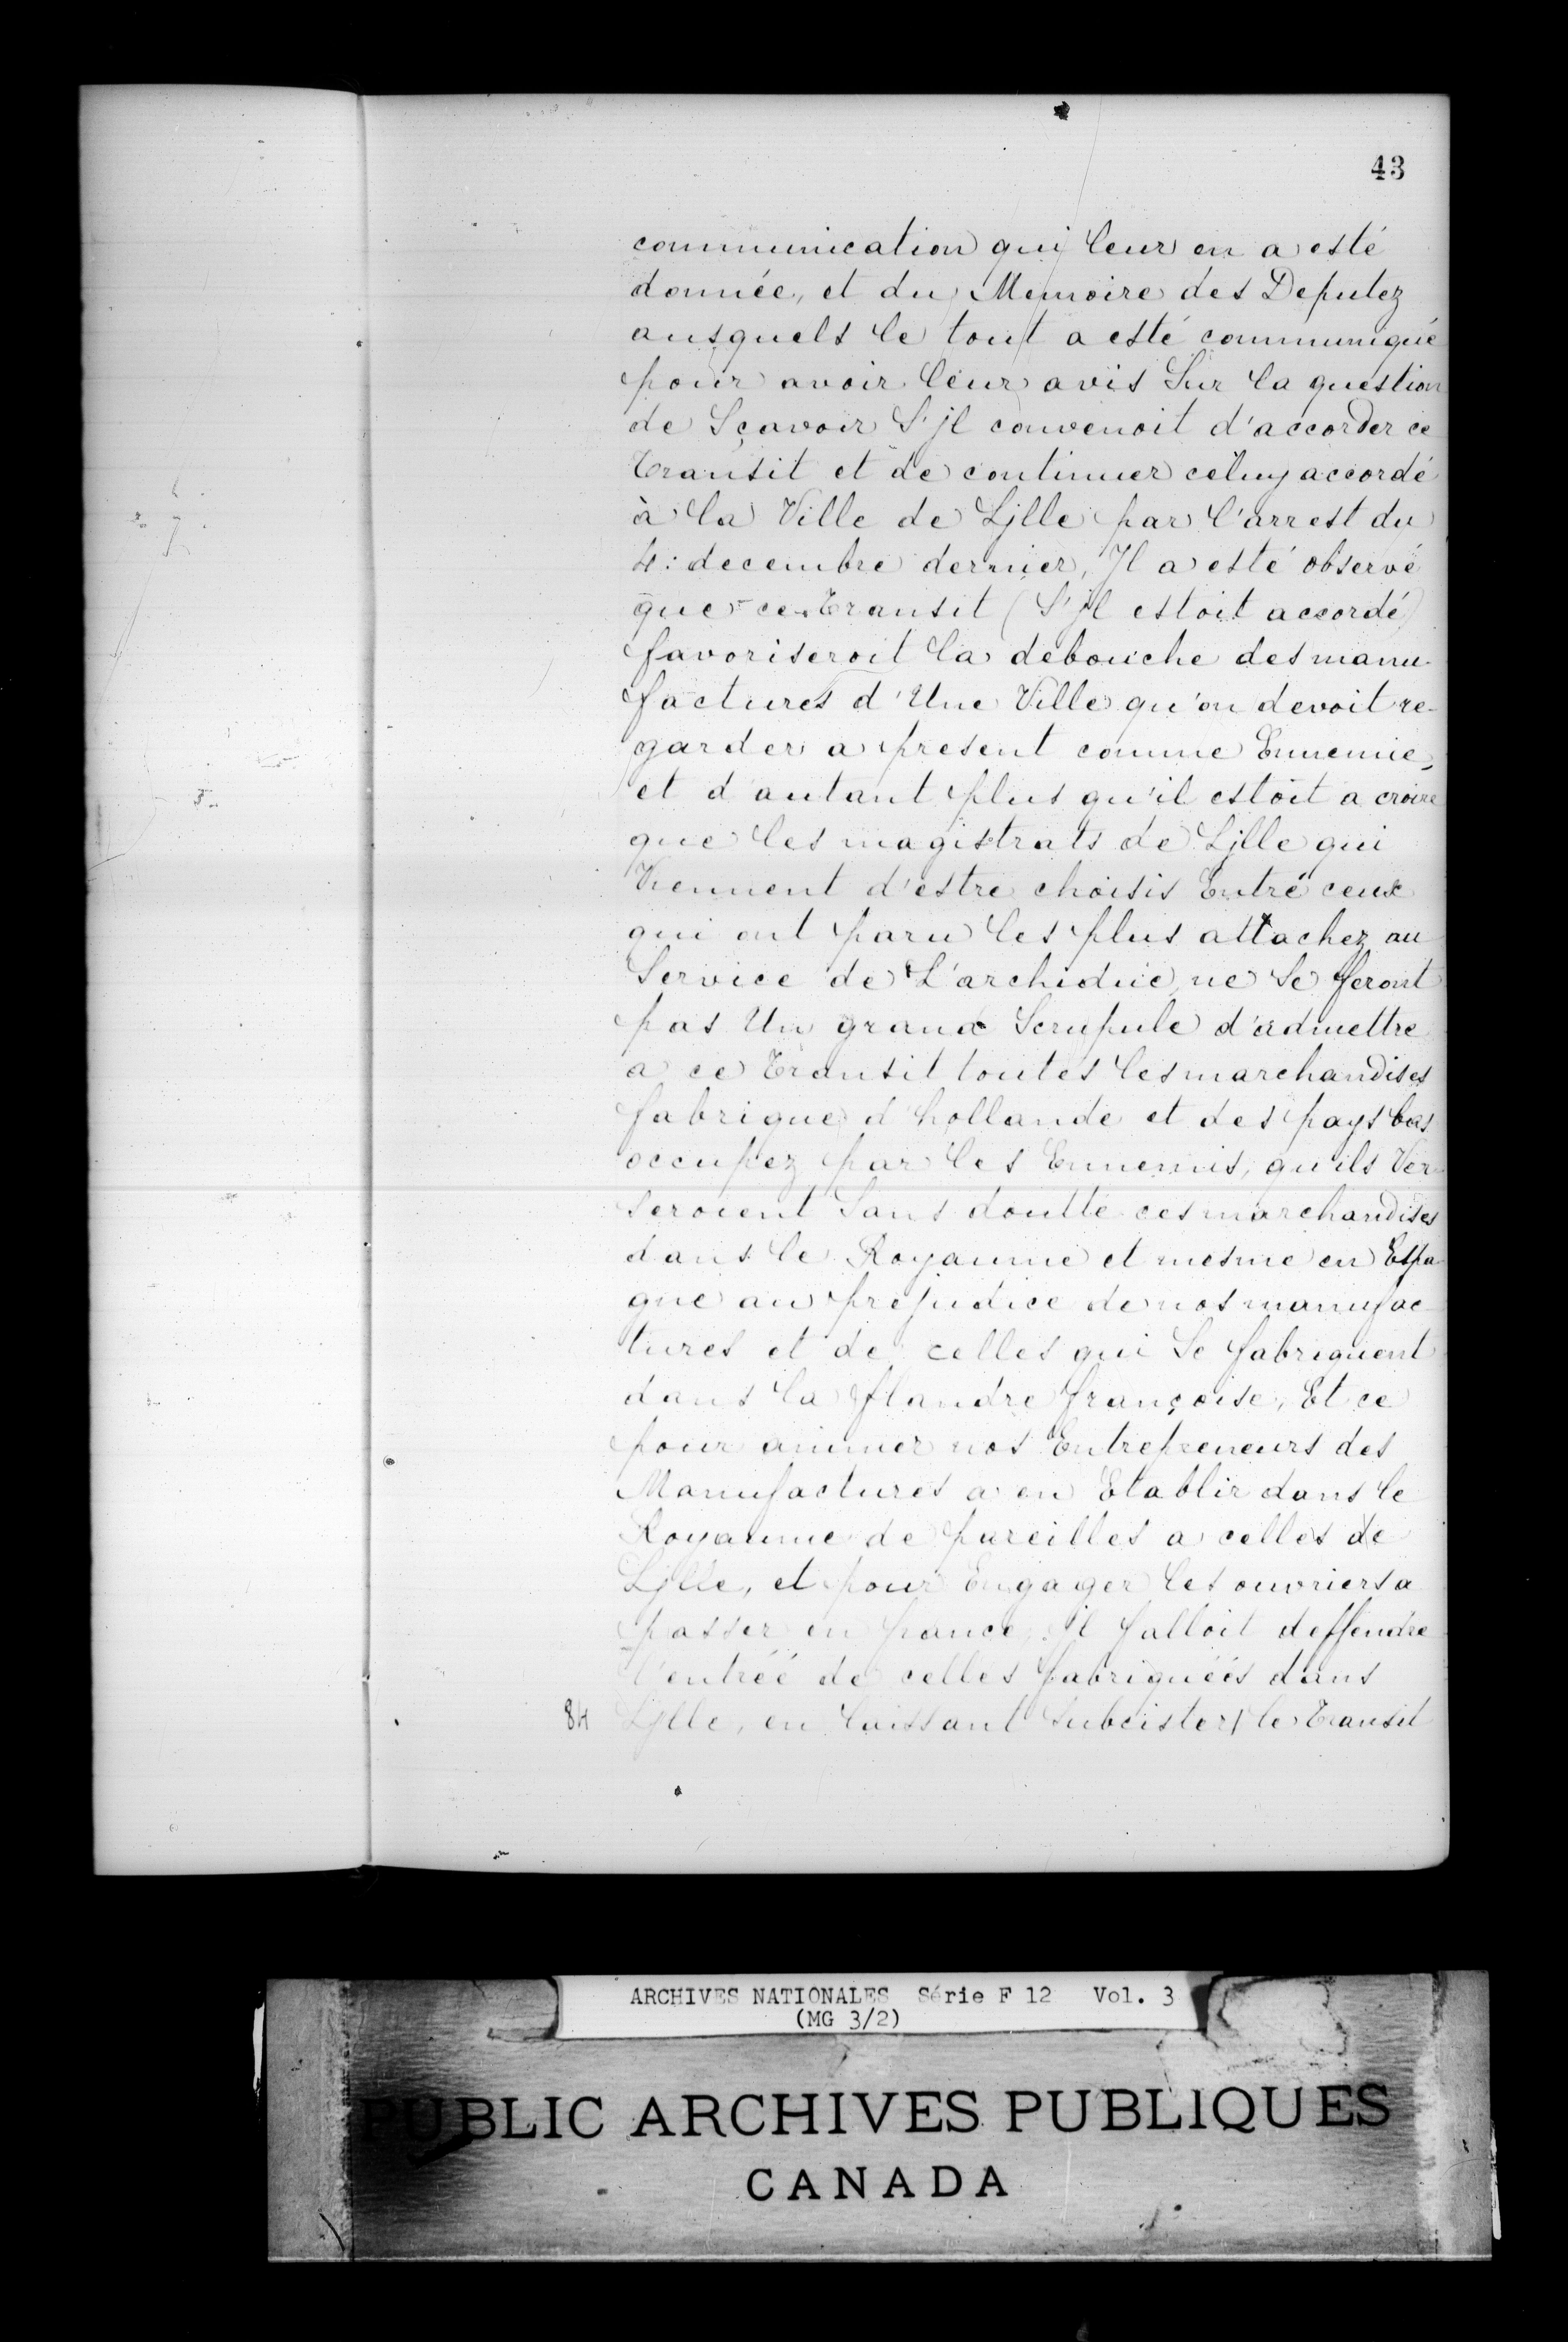 43
communication qui leur en a esté
donnée, et du Memoire des Deputez
ausquels le tout a esté communiqué
pour avoir leur avis Sur la question
de Sçavoir S'jl convenoit d'accorder ce
Transit et de continuer celuy accordé
à la Ville de Ljlle par l'arrest du
4: decembre dernier, Jl a esté observé
que ce Transit (S'jl estoit accordé)
favoriseroit la debouche des manu-
factures d'Une Ville qu'on devoit re-
garder a present comme Ennemie,
et d'autant plus qu'il estoit a croire
que les magistrats de Ljlle qui
Viennent d'estre choisis Entre ceux
qui ont paru les plus attachez au
Service de L'archiduc ne Se feront
pas Un grand Scrupule d'admettre
a ce Transit toutes les marchandises
fabrique d'hollande et des pays bas
occupez par les Ennemis, qu'ils Ver-
seroient Sans doutte ces marchandises
dans le Royaume et mesme en Espa-
gne au prejudice de nos manufac-
tures et de celles qui Se fabriquent
dans la flandre françoise, Et ce
pour animer nos Entrepreneurs des
Manufactures a en Etablir dans le
Royaume de pareilles a celles de
Ljlle, et pour Engager les ouvriers a
passer en france, jl falloit deffendre
l'entréé de celles fabriquéés dans
84 Ljlle, en laissant Subcister le Transit
ARCHIVES NATIONALES Série F 12 Vol. 3
(MG 3/2)
PUBLIC ARCHIVES PUBLIQUES
CANADA